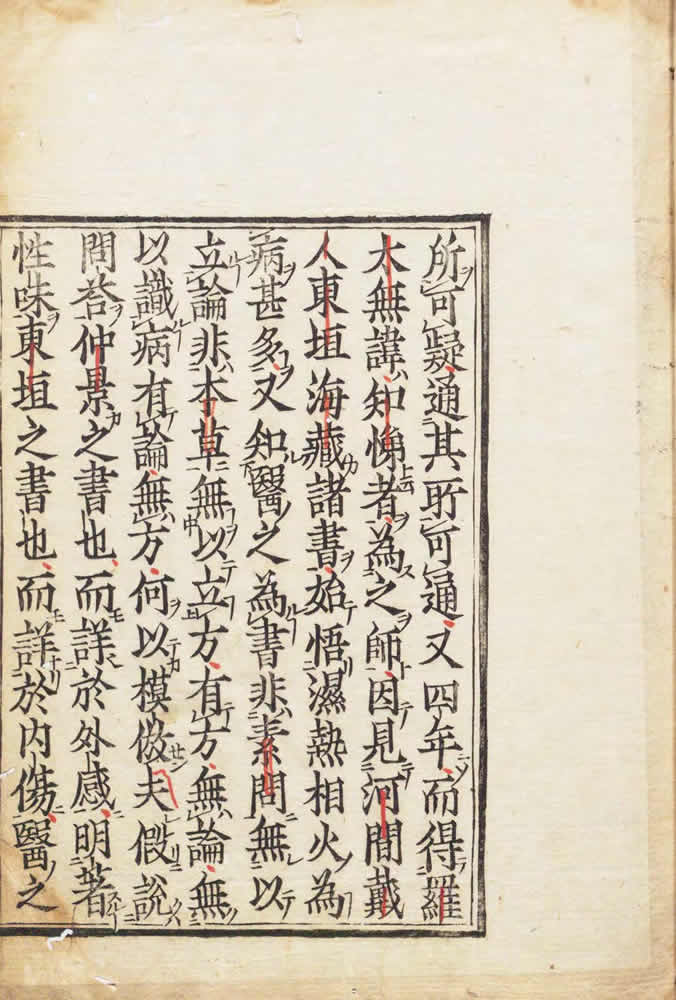 所可疑通其所可通又四年而得羅
太無諱知悌者為之師因見河間戴
人東垣海藏諸書始悟濕熱相火為
病甚多又知醫之為書非素問無以
立論非本草無以立方有方無論無
以識病有論無方何以模倣夫假說
問荅仲景之書也而詳於外感明著
性味東垣之書也而詳於内傷醫之